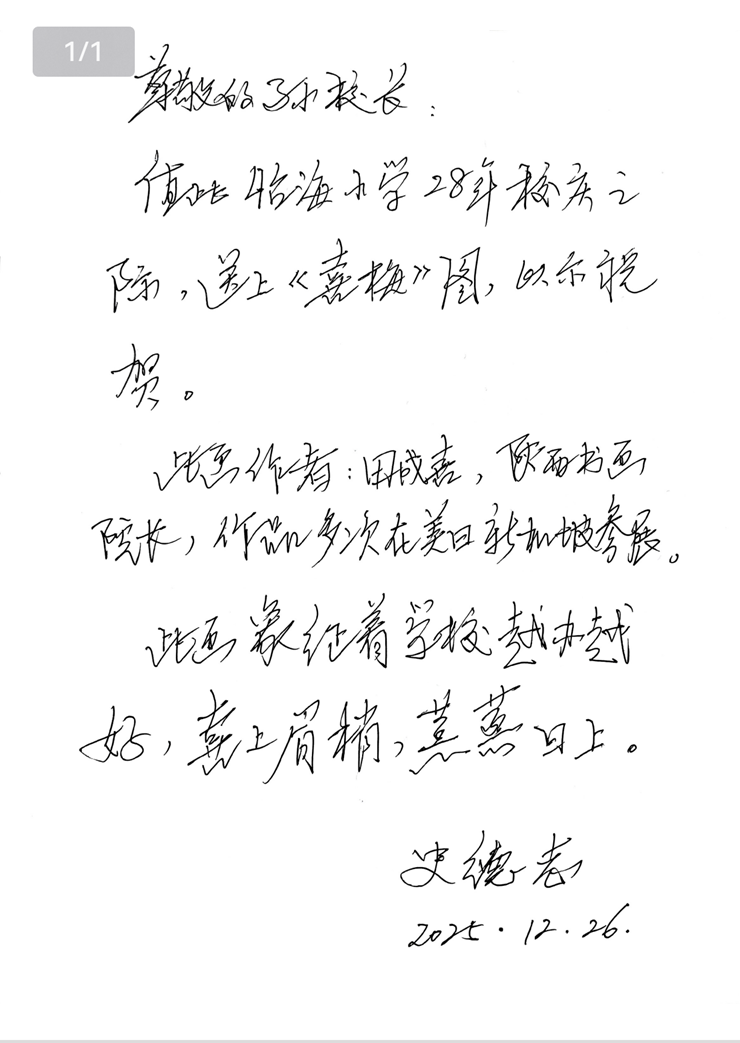 1/1
尊敬的孙校长：
值此怡海小学28年校庆之
际，送上《喜梅》图，以示祝
贺。
此画作者：田成喜，陕西书画
院长，作品多次在美日新加坡参展。
此画象征着学校越办越
好，喜上眉梢，蒸蒸日上。
史德志
2025.12.26.